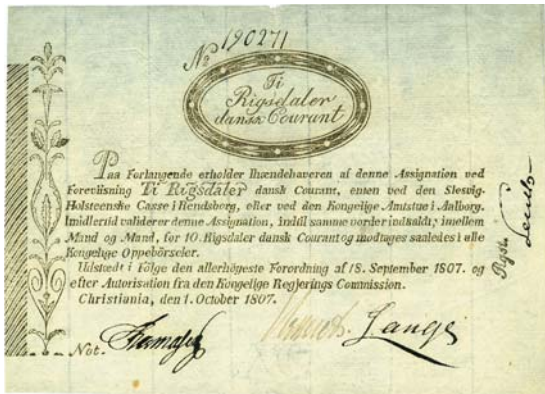 No 190271
Ti
Rigsdaler
dansk Courant
Paa Forlangende erholder Ihændehaveren af denne Assignation ved
Foreviisning Ti Rigsdaler dansk Courant, enten ved den Slesvig-
Holsteenske Casse i Rendsborg, eller ved den Kongelige Amtstue i Aalborg.
Imidlertid validerer denne Assignation, indtil samme vorder indkaldt, imellem
Mand og Mand, for 10. Rigsdaler dansk Courant og modtages saaledes i alle
Kongelige Oppebörseler.
Udstædt i Følge den allerhögeste Forordning af 18. September 1807. og
efter Autorisation fra den Kongelige Regjerings Commission.
Christiania, den 1. October 1807.
Not.
Lange